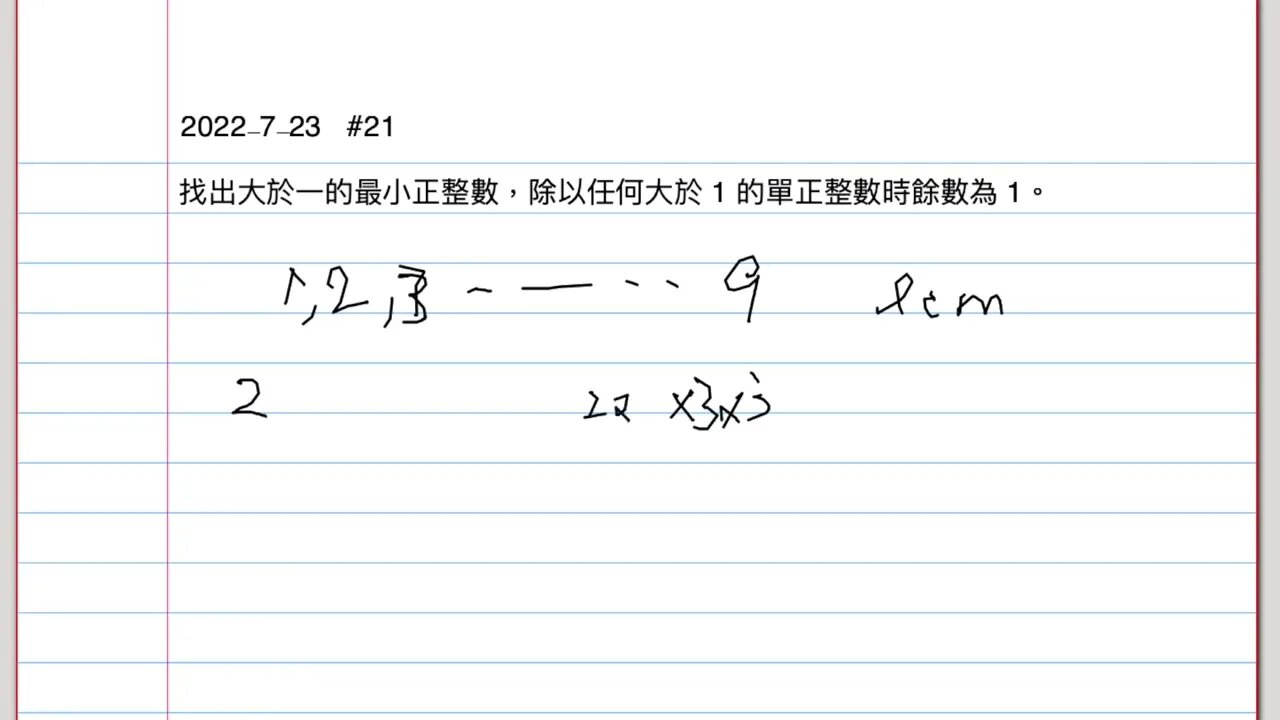 2022_7_23 #21
找出大於一的最小正整數，除以任何大於 1 的單正整數時餘數為 1。
1,2,3 - — · · 9 lcm
2 22 ×3×3